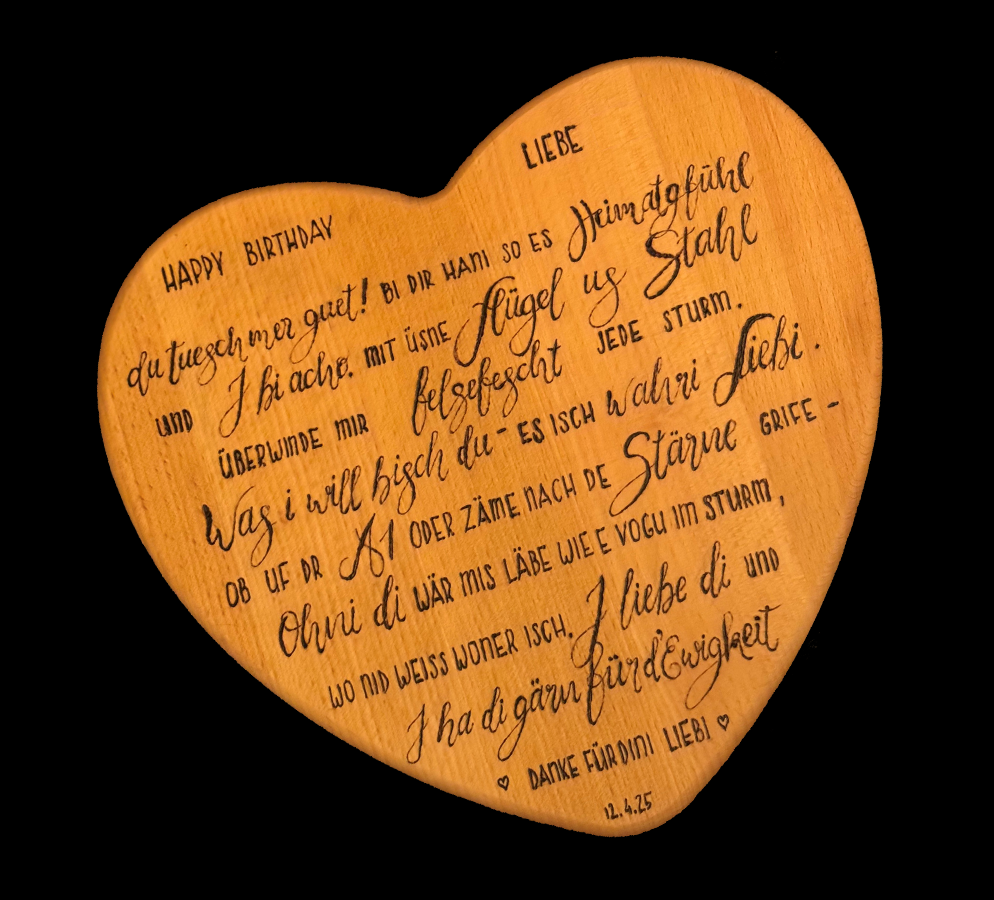 HAPPY BIRTHDAY LIEBE
du tuesch mer guet! BI DIR HANI SO ES Heimatgfühl
UND I bi acho. MIT ÜSNE Flügel us Stahl
ÜBERWINDE MIR felsefescht JEDE STURM.
Was i will bisch du - ES ISCH wahri Liebi.
OB UF DR A1 ODER ZÄME NACH DE Stärne GRIFE -
Ohni di WÄR MIS LÄBE WIE E VOGU IM STURM,
WO NID WEISS WONER ISCH. I liebe di UND
I ha di gärn für d'Ewigkeit
♡ DANKE FÜR DINI LIEBI ♡
12.4.25